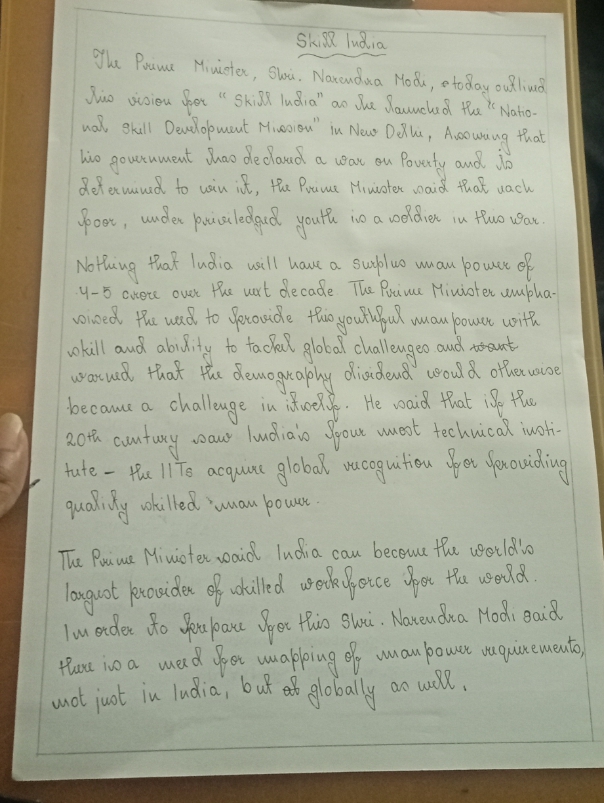 Skill India
The Prime Minister, Shri. Narendra Modi, today outlined
his vision for "Skill India" as he launched the "Natio-
nal Skill Development Mission" in New Delhi, Assuring that
his government has declared a war on Poverty and is
determined to win it, the Prime Minister said that each
poor, under priviledged youth is a soldier in this war.
Nothing that India will have a surplus man power of
4-5 crore over the next decade. The Prime Minister empha-
sised the need to provide this youthful man power with
skill and ability to tackel global challenges and want
warned that the demography dividend would other wise
became a challenge in itself. He said that if the
20th century saw India's four most technical insti-
tute - the IITs acquire global recognition for providing
quality skilled man power.
The Prime Minister said India can become the world's
largest provider of skilled workforce for the world.
In order to prepare for this Shri. Narendra Modi said
there is a need for mapping of man power requirements,
not just in India, but at globally as well.